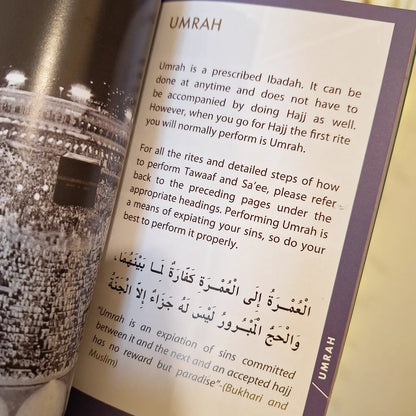 UMRAH
Umrah is a prescribed Ibadah. It can be
done at anytime and does not have to
be accompanied by doing Hajj as well.
However, when you go for Hajj the first rite
you will normally perform is Umrah.
For all the rites and detailed steps of how
to perform Tawaaf and Sa'ee, please refer
back to the preceding pages under the
appropriate headings. Performing Umrah is
a means of expiating your sins, so do your
best to perform it properly.
الْعُمْرَةُ إِلَى الْعُمْرَةِ كَفَّارَةٌ لِمَا بَيْنَهُمَا،
وَالْحَجُّ الْمَبْرُورُ لَيْسَ لَهُ جَزَاءٌ إِلَّا الْجَنَّةُ
"Umrah is an expiation of sins committed
between it and the next and an accepted hajj
has no reward but paradise"-(Bukhari and
Muslim)
/ UMRAH